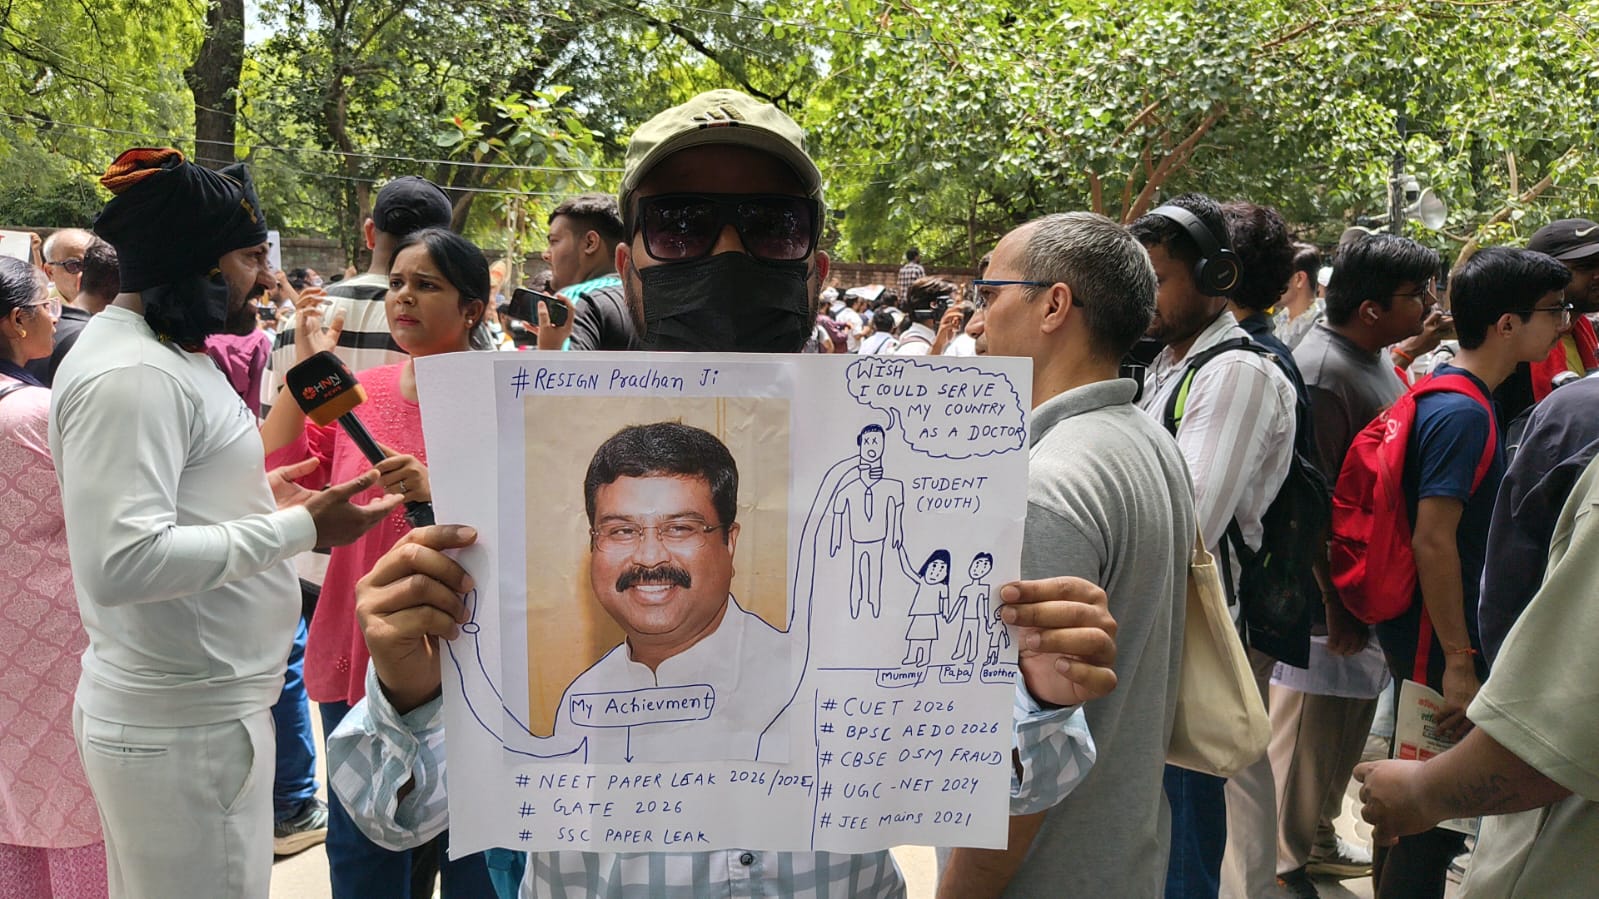 #RESIGN Pradhan Ji
WISH
I COULD SERVE
MY COUNTRY
AS A DOCTOR
STUDENT
(YOUTH)
Mummy
Papa
Brother
My Achievment
# NEET PAPER LEAK 2026/2025
# GATE 2026
# SSC PAPER LEAK
# CUET 2026
# BPSC AEDO 2026
# CBSE OSM FRAUD
# UGC-NET 2024
# JEE Mains 2021
HNN
NEWS